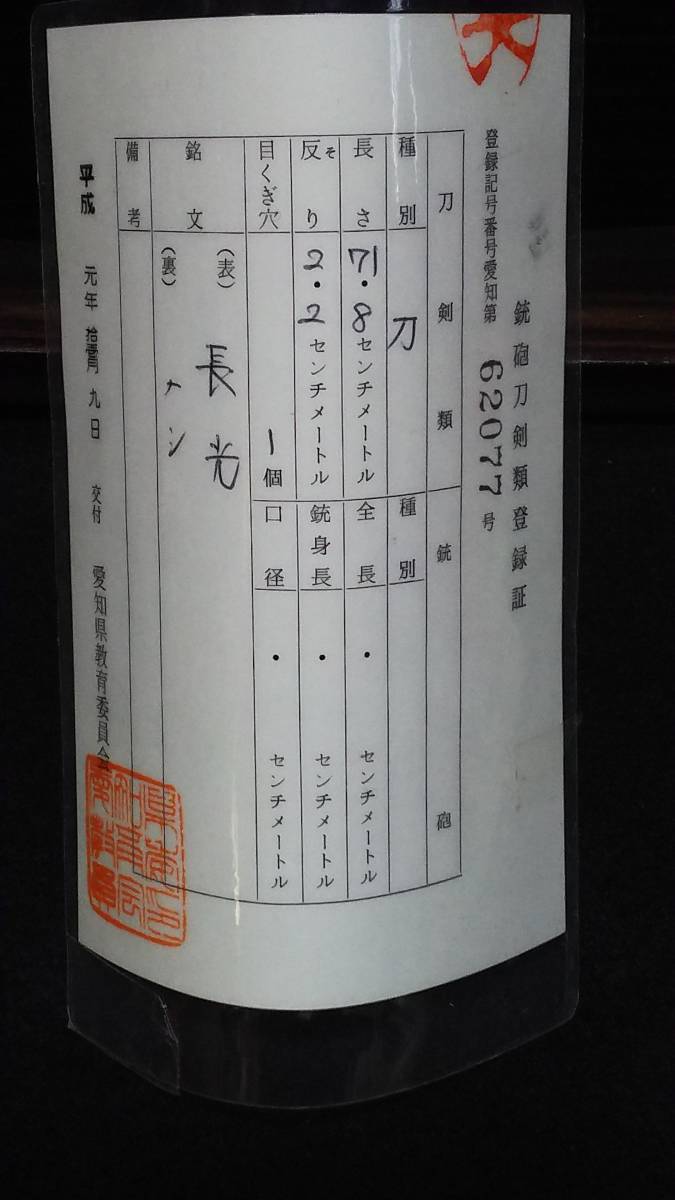 銃砲刀剣類登録証
登録記号番号愛知第 62077 号
刀剣類
銃砲
種別 刀
種別
長さ 71・8センチメートル
全長 ・ センチメートル
反り そ 2・2センチメートル
銃身長 ・ センチメートル
目くぎ穴 1個
口径 ・ センチメートル
銘文
(表) 長光
(裏) ナシ
備考
平成 元年 九日 交付 愛知県教育委員会